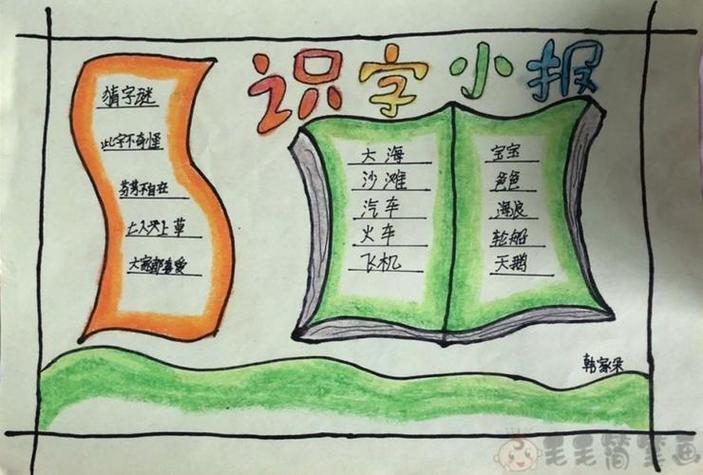 识字小报
猜字谜
此字不奇怪
不自在
七人头上草
大家都喜爱
大海
沙滩
汽车
火车
飞机
宝宝
爸爸
海浪
轮船
天鹅
韩家
毛毛简笔画